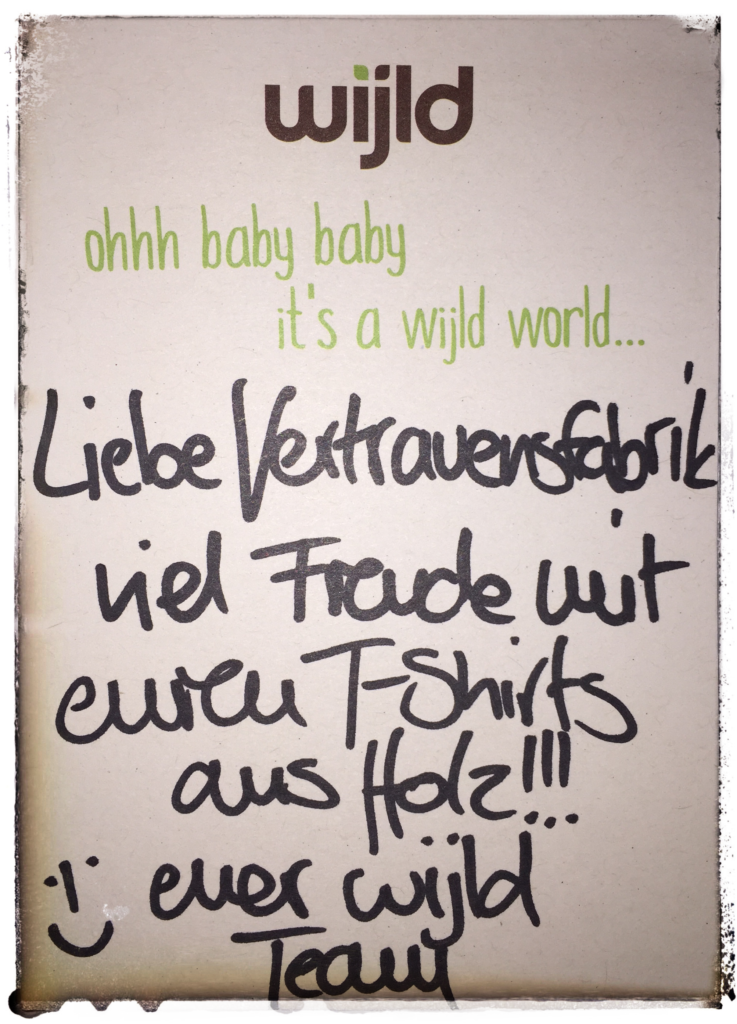 wijld
ohhh baby baby
it's a wijld world...
Liebe Vertrauensfabrik
viel Freude mit
euren T-Shirts
aus Holz!!!
euer wijld
Team